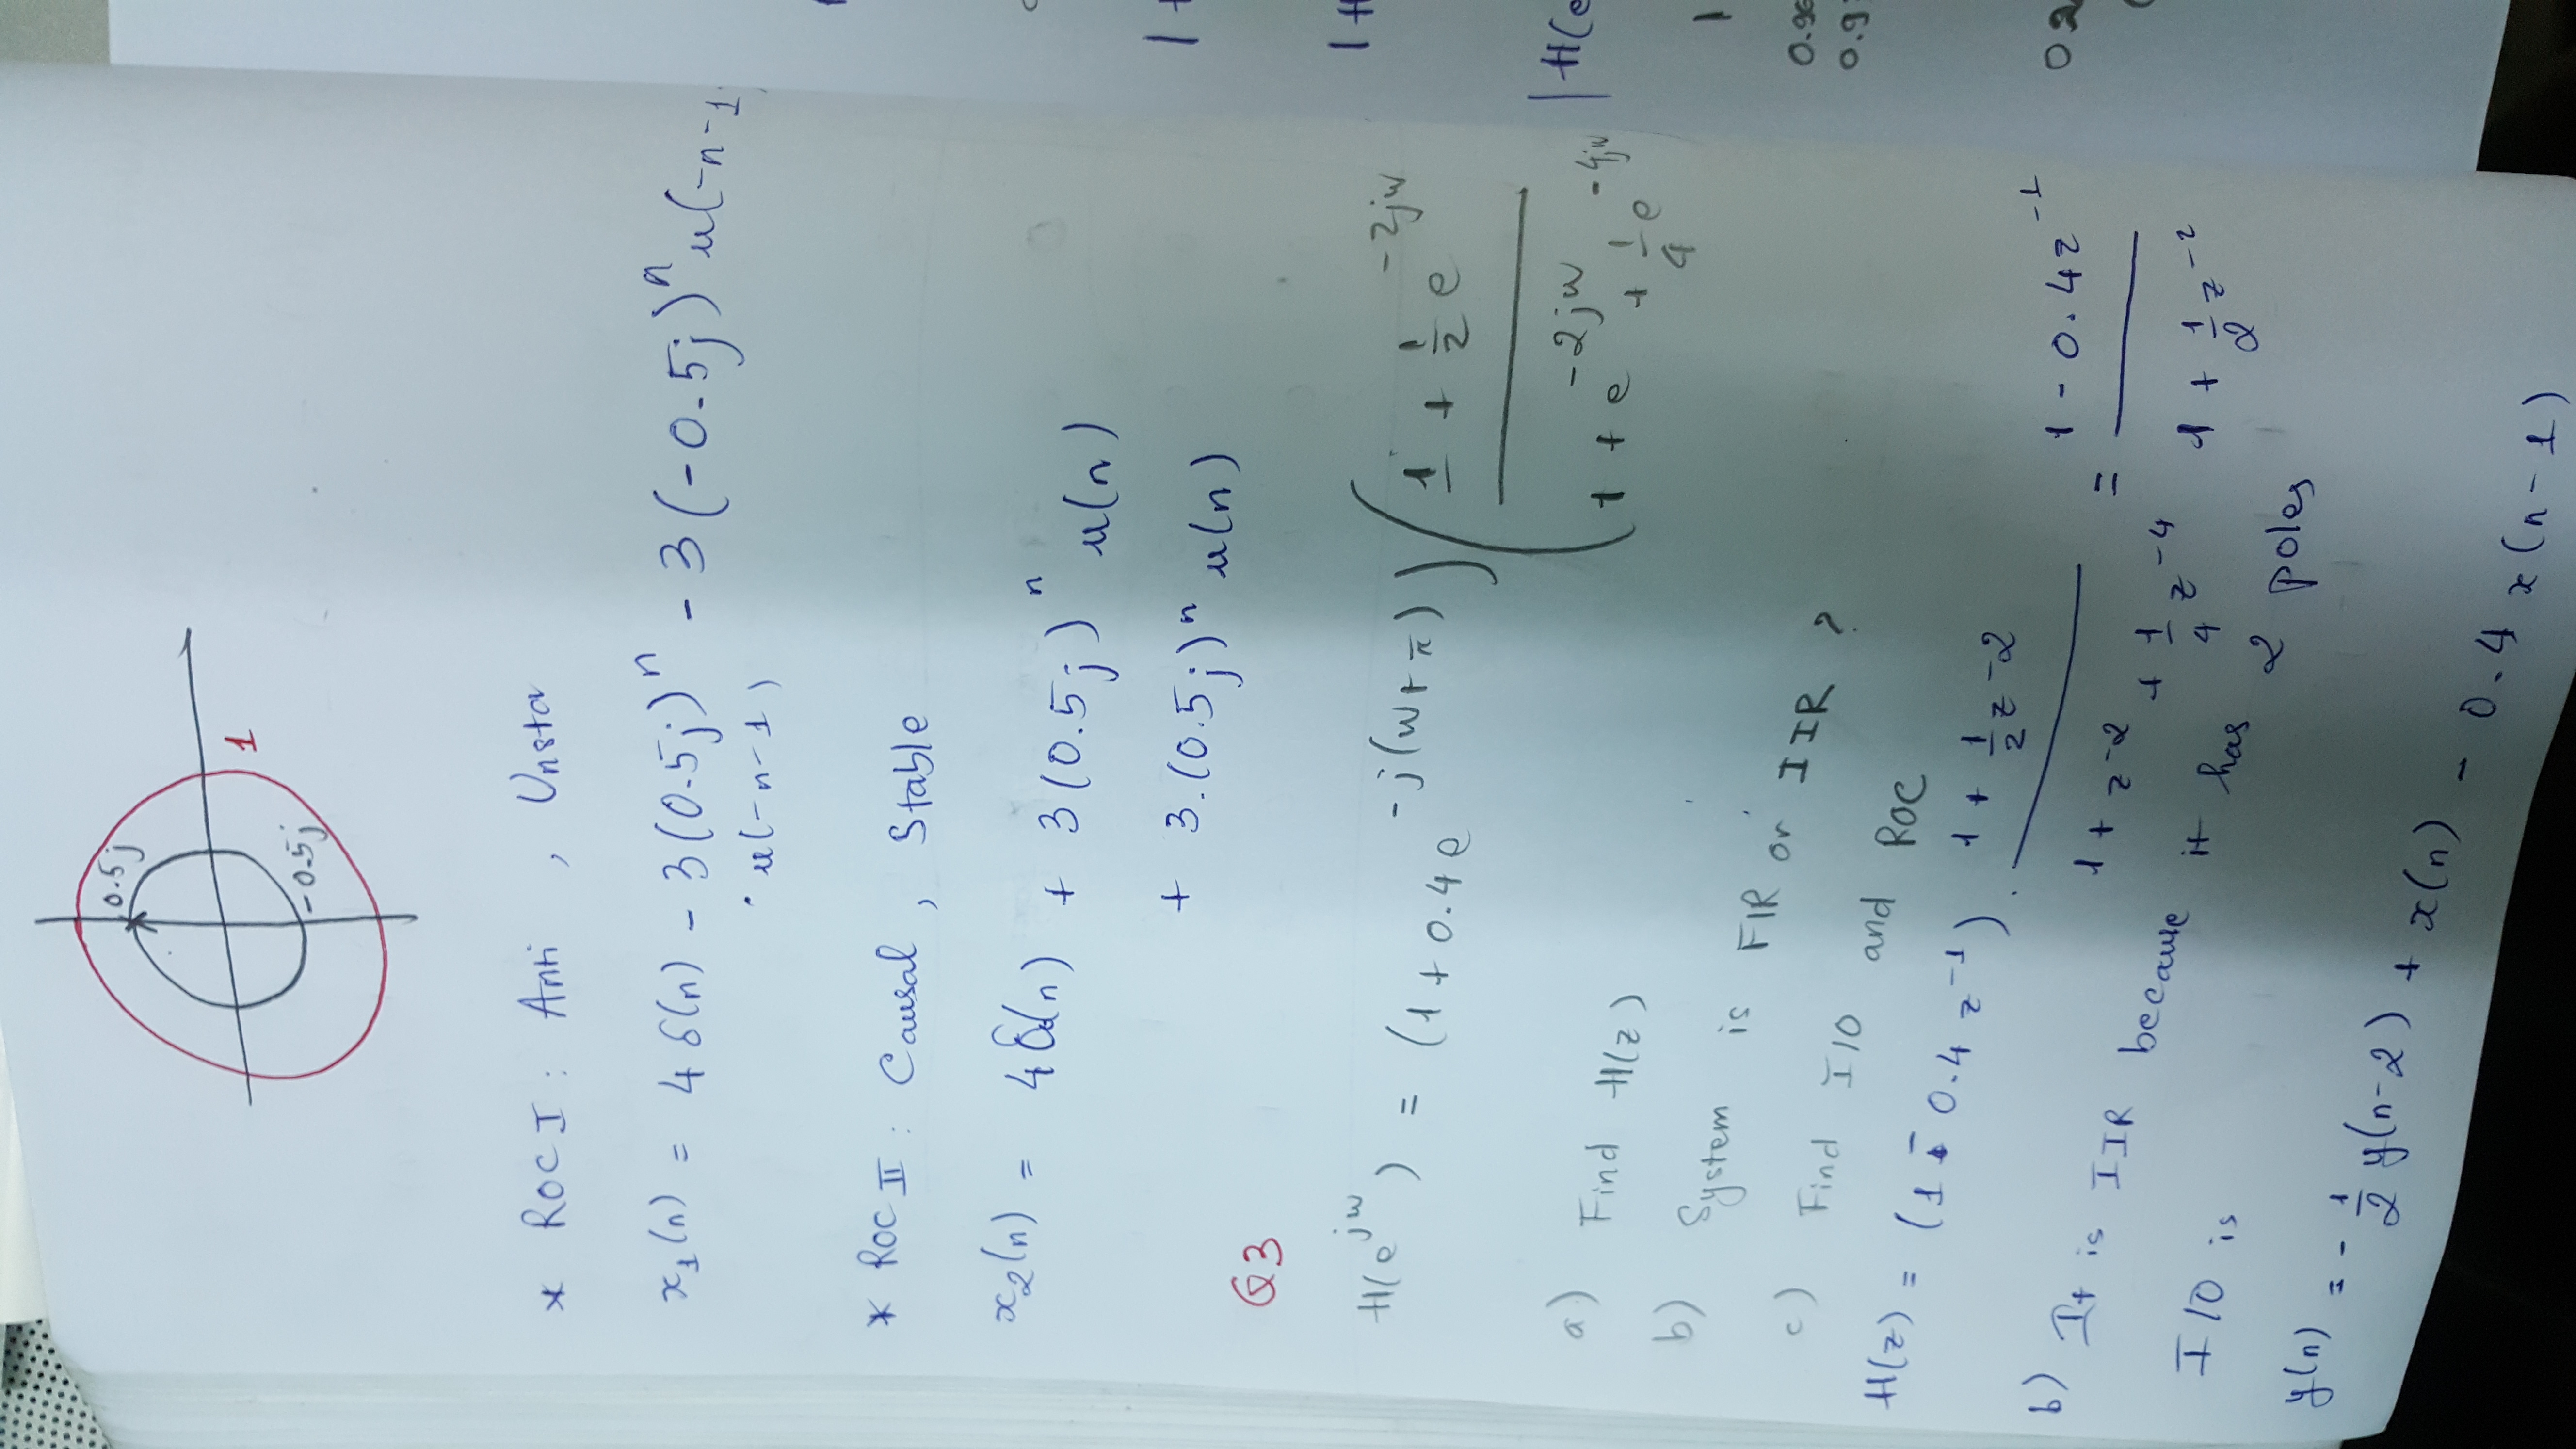 0.5j
1
-0.5j
* ROC I : Anti , Unsta
x₁(n) = 4 δ(n) - 3(0.5j)ⁿ - 3(-0.5j)ⁿ u(-n-1
· u(-n-1)
* ROC II : Causal , Stable
x₂(n) = 4δ(n) + 3(0.5j)ⁿ u(n)
+ 3.(0.5j)ⁿ u(n)
Q3
H(e^{jw}) = (1 + 0.4e^{-j(w+π)}) ( (1 + 1/2 e^{-2jw}) / (1 + e^{-2jw} + 1/4 e^{-4jw})
a) Find H(z)
b) System is FIR or IIR ?
c) Find I/O and ROC
H(z) = (1 - 0.4 z⁻¹) . (1 + 1/2 z⁻²) / (1 + z⁻² + 1/4 z⁻⁴) = (1 - 0.4z⁻¹) / (1 + 1/2 z⁻²)
b) It is IIR because it has 2 poles
I/O is
y(n) = - 1/2 y(n-2) + x(n) - 0.4 x(n-1)